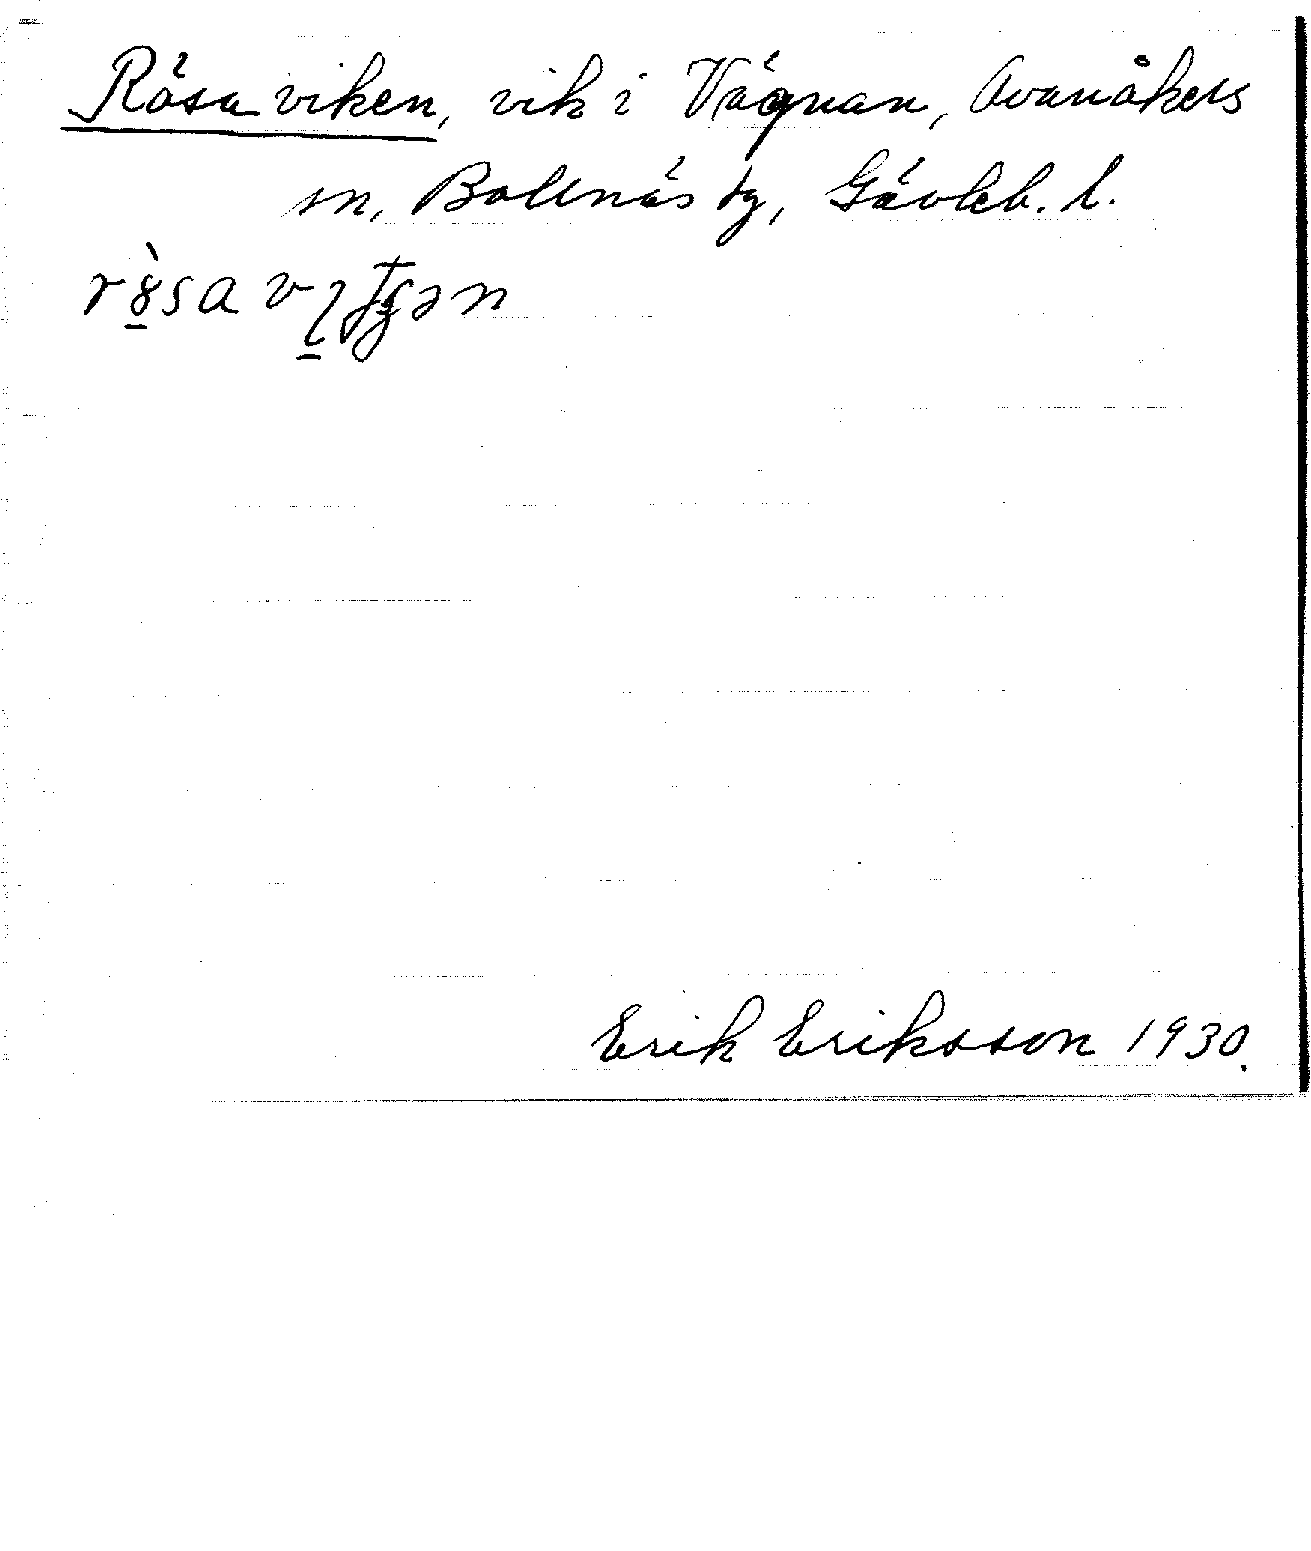 Rösaviken, vik i Vägnan, Ovanåkers
sn, Bollnäs tg, Gävleb. l.
Erik Eriksson 1930.